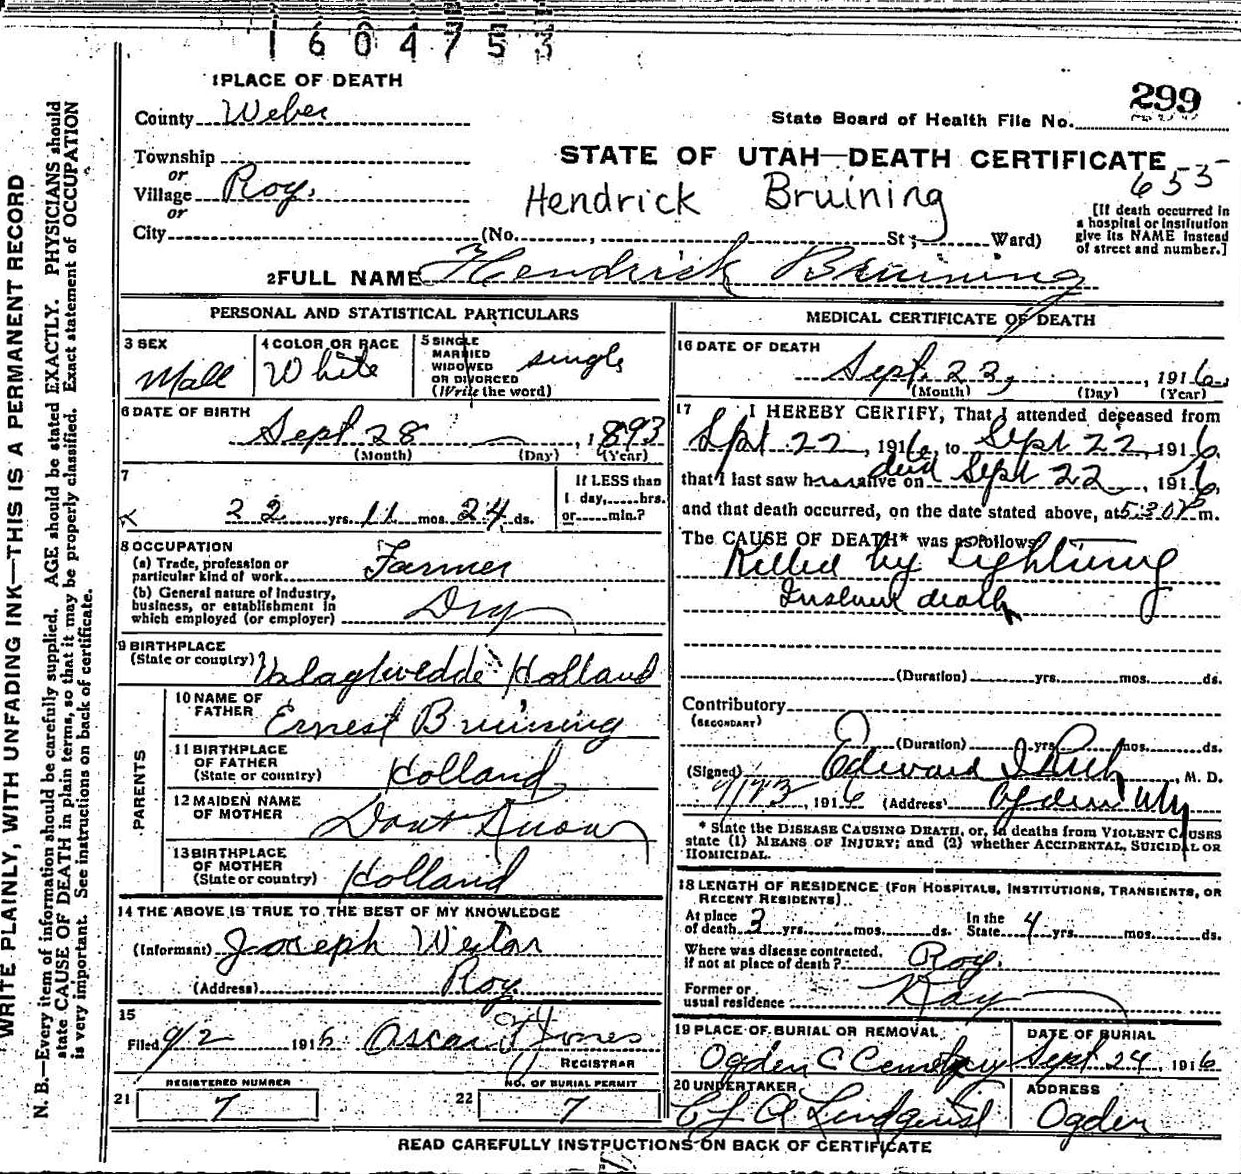 1604753
1 PLACE OF DEATH
299
County Weber
State Board of Health File No.
Township
STATE OF UTAH—DEATH CERTIFICATE
or
Village Roy.
Hendrick Bruining
653
or
[If death occurred in
a hospital or institution
give its NAME instead
of street and number.]
City (No. , St; Ward)
2 FULL NAME Hendrick Bruining
PERSONAL AND STATISTICAL PARTICULARS
3 SEX
Male
4 COLOR OR RACE
White
5 SINGLE
MARRIED
WIDOWED
OR DIVORCED
(Write the word)
single
6 DATE OF BIRTH
Sept 28 — , 1893
(Month) (Day) (Year)
7
22 yrs. 11 mos. 24 ds.
If LESS than
1 day, hrs.
or min.?
8 OCCUPATION
(a) Trade, profession or
particular kind of work Farmer
(b) General nature of Industry,
business, or establishment in
which employed (or employer) Dry
9 BIRTHPLACE
(State or country) Holland
PARENTS
10 NAME OF
FATHER
Ernest Bruining
11 BIRTHPLACE
OF FATHER
(State or country) Holland
12 MAIDEN NAME
OF MOTHER Dont Know
13 BIRTHPLACE
OF MOTHER
(State or country) Holland
14 THE ABOVE IS TRUE TO THE BEST OF MY KNOWLEDGE
(Informant) Joseph
(Address) Roy
15
Filed 9/2 1916 Oscar Jones
REGISTRAR
REGISTERED NUMBER
21 7
NO. OF BURIAL PERMIT
22 7
MEDICAL CERTIFICATE OF DEATH
16 DATE OF DEATH
Sept. 22, , 1916.
(Month) (Day) (Year)
17 I HEREBY CERTIFY, That I attended deceased from
Sept 22 , 1916, to Sept 22, 1916,
that I last saw h alive on dead Sept 22 , 1916,
and that death occurred, on the date stated above, at 5:30 P m.
The CAUSE OF DEATH* was as follows:
Killed by Lightning
Instant death
(Duration) yrs. mos. ds.
Contributory
(SECONDARY)
(Duration) yrs. mos. ds.
(Signed) Edward I Rich , M. D.
9/23 , 1916 (Address) Ogden Utg
* State the DISEASE CAUSING DEATH, or, in deaths from VIOLENT CAUSES
state (1) MEANS OF INJURY; and (2) whether ACCIDENTAL, SUICIDAL OR
HOMICIDAL.
18 LENGTH OF RESIDENCE (FOR HOSPITALS, INSTITUTIONS, TRANSIENTS, OR
RECENT RESIDENTS).
At place
of death 3 yrs. mos. ds.
In the
State 4 yrs. mos. ds.
Where was disease contracted,
If not at place of death? Roy.
Former or
usual residence Roy
19 PLACE OF BURIAL OR REMOVAL
Ogden C Cemetery
DATE OF BURIAL
Sept 24 , 1916
20 UNDERTAKER
Lindquist
ADDRESS
Ogden
READ CAREFULLY INSTRUCTIONS ON BACK OF CERTIFICATE
WRITE PLAINLY, WITH UNFADING INK—THIS IS A PERMANENT RECORD
N. B.—Every item of information should be carefully supplied. AGE should be stated EXACTLY. PHYSICIANS should
state CAUSE OF DEATH in plain terms, so that it may be properly classified. Exact statement of OCCUPATION
is very important. See instructions on back of certificate.